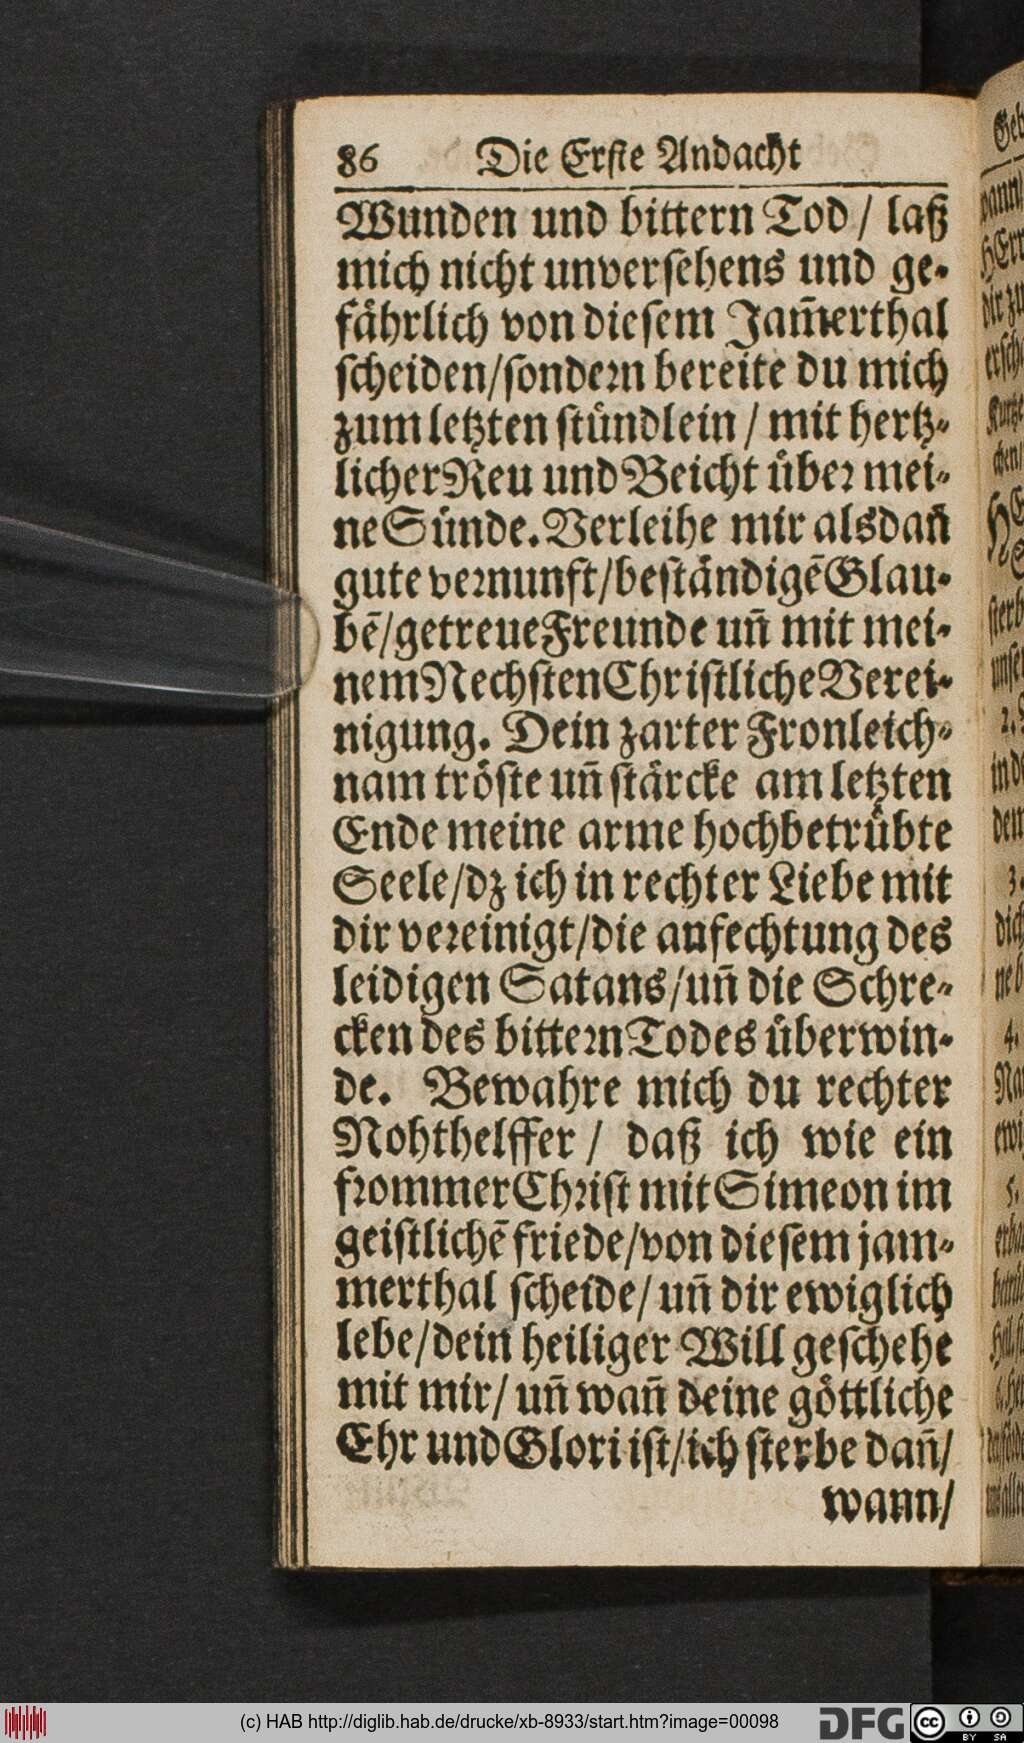 86 Die Erste Andacht
Wunden und bittern Tod / laß
mich nicht unversehens und ge-
fährlich von diesem Jam̃erthal
scheiden/sondern bereite du mich
zum letzten stündlein / mit hertz-
licher Reu und Beicht über mei-
ne Sünde. Verleihe mir alsdañ
gute vernunft/beständigẽ Glau-
bẽ/getreue Freunde uñ mit mei-
nem Nechsten Christliche Verei-
nigung. Dein zarter Fronleich-
nam tröste uñ stärcke am letzten
Ende meine arme hochbetrübte
Seele/dz ich in rechter Liebe mit
dir vereinigt/die anfechtung des
leidigen Satans/uñ die Schre-
cken des bittern Todes überwin-
de. Bewahre mich du rechter
Nohthelffer / daß ich wie ein
frommer Christ mit Simeon im
geistlichẽ friede/von diesem jam-
merthal scheide/ uñ dir ewiglich
lebe/dein heiliger Will geschehe
mit mir/ uñ wañ deine göttliche
Ehr und Glori ist/ich sterbe dañ/
wann/
(c) HAB http://diglib.hab.de/drucke/xb-8933/start.htm?image=00098
DFG
cc BY SA